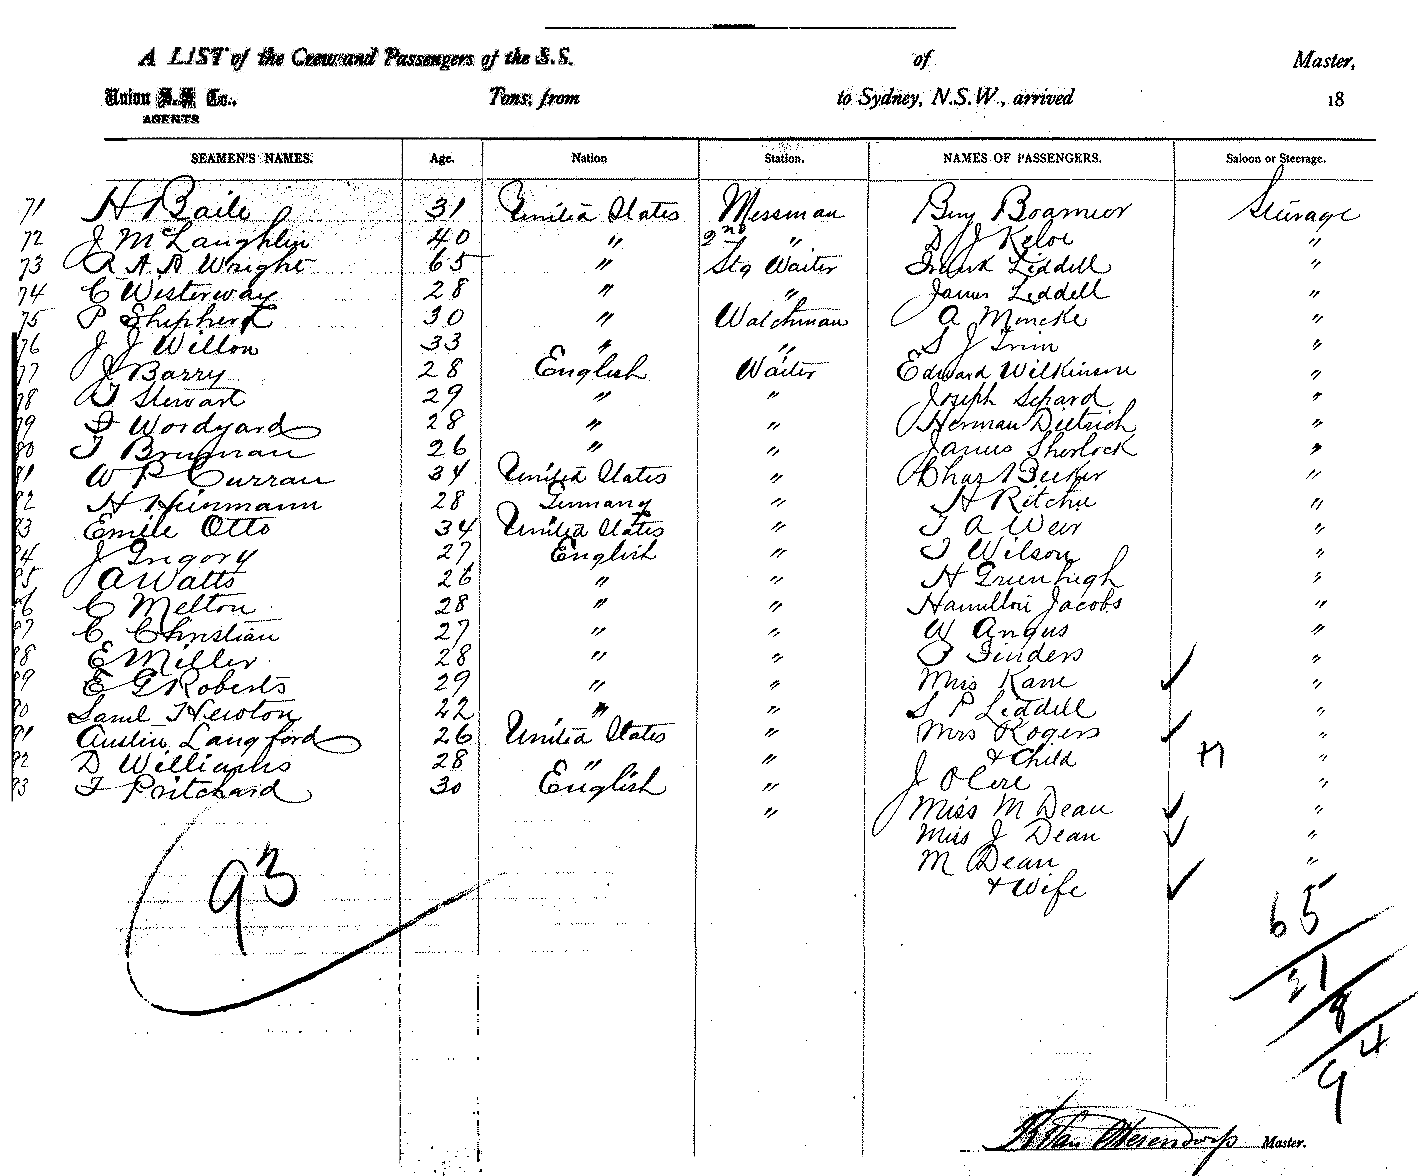 A LIST of the Crew and Passengers of the S.S. of Master,
Union S.S. Co., Tons, from to Sydney, N.S.W., arrived 18
AGENTS
SEAMEN'S NAMES. Age. Nation Station. NAMES OF PASSENGERS. Saloon or Steerage.
71 H Baile 31 United States Messman Benj Steerage
72 J McLaughlin 40 " 2nd " D J Keloe "
73 R A A Wright 65 " Stg Waiter Frank Liddell "
74 C Westerway 28 " " James Liddell "
75 P Shepherd 30 " Watchman A Moncke "
76 J J Willon 33 " " S J Trim "
77 J Barry 28 English Waiter Edward Wilkinson "
78 T Stewart 29 " " Joseph "
79 F Wordyard 28 " " Herman Dietrich "
80 T Brugman 26 " " James Sherlock "
81 W P Curran 34 United States " Chas Becker "
82 H Heinmann 28 Germany " H Ritchie "
83 Emile Otto 34 United States " T A Weir "
84 J Gregory 27 English " T Wilson "
85 A Watts 26 " " H Greenhigh "
86 C Melton 28 " " Hamilton Jacobs "
87 C Christian 27 " " W Angus "
88 E Miller 28 " " Finders "
89 E G Roberts 29 " " Mrs Kane "
90 Saml T Newton 22 " " S P Liddell "
91 Austin Langford 26 United States " Mrs Rogers "
92 D Williams 28 " " + Child "
93 F Pritchard 30 English " J "
" Miss M Dean "
Miss J Dean "
M Dean "
+ Wife
93
65
21
8
4
9
Master.